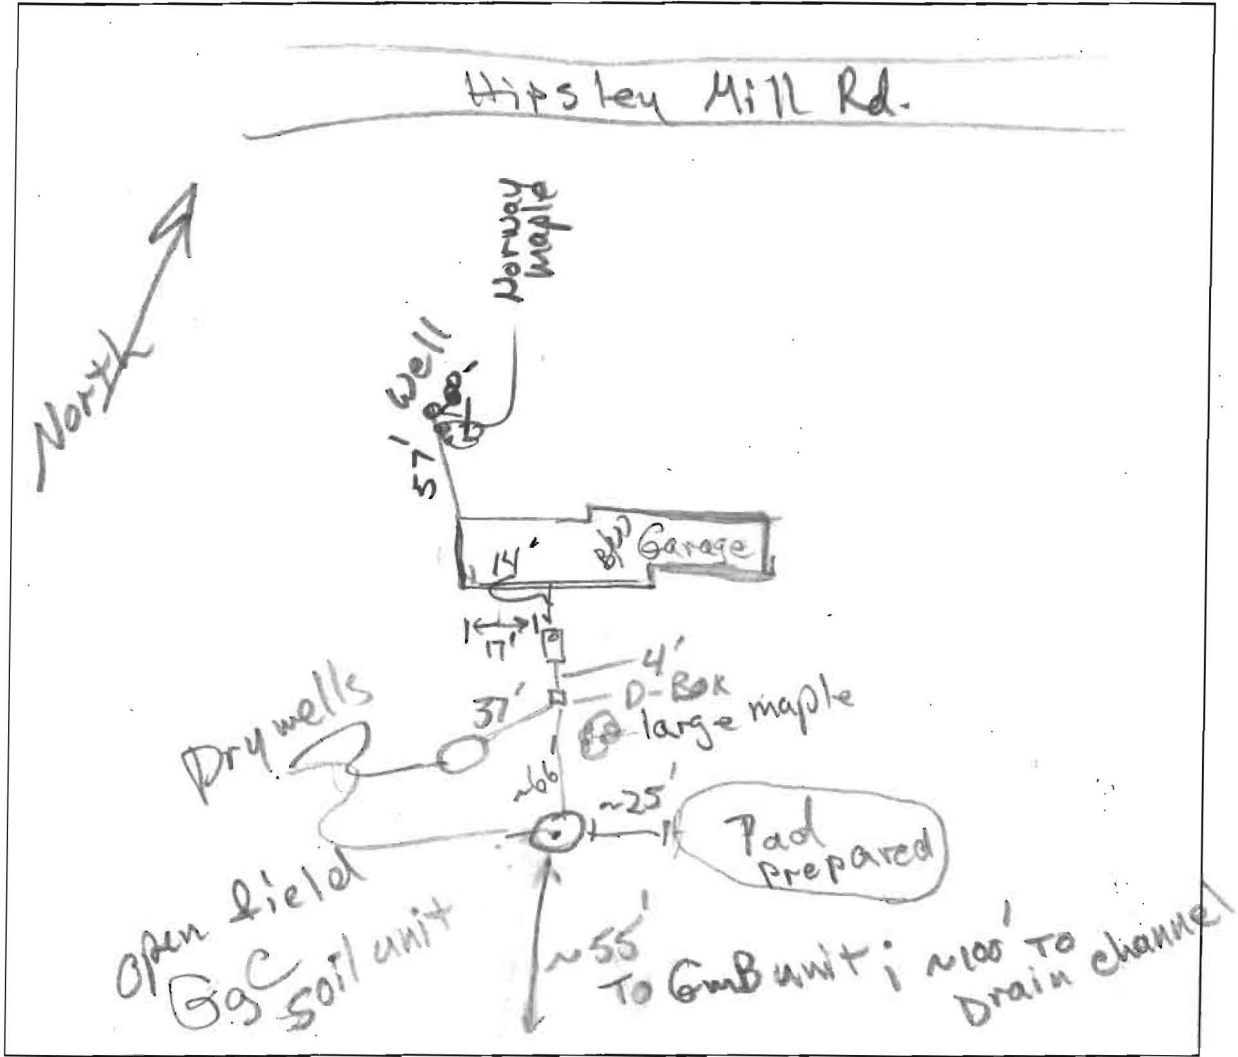 Hipsley Mill Rd.
Norway
maple
North
Well
57'
14'
Garage
17'
4'
D-Box
37'
large maple
Drywells
~66'
~25'
Pad
prepared
open field
GgC
soil unit
~55'
To GmB unit; ~100' To
Drain channel